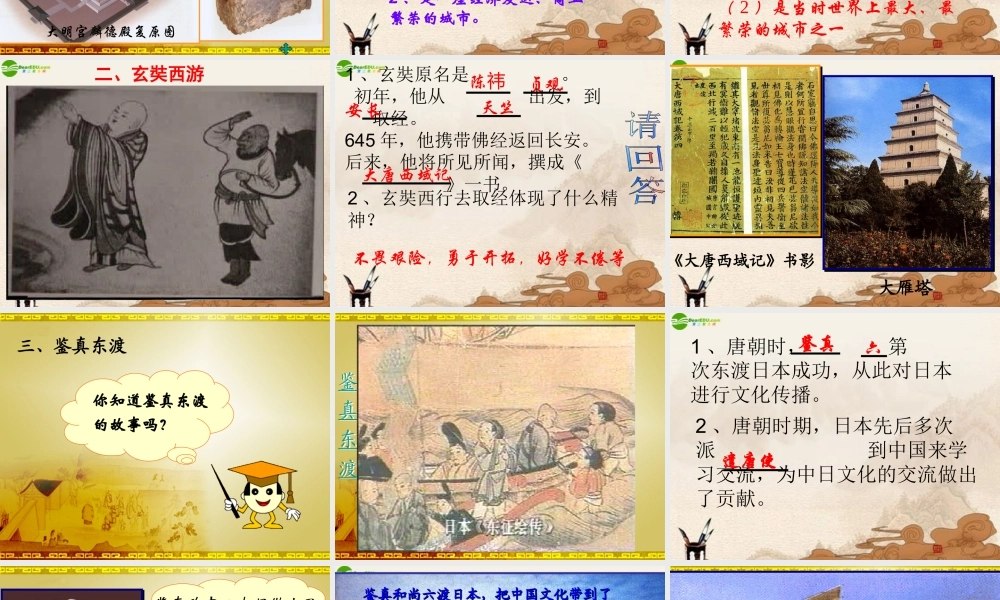 大明宫麟德殿复原图
繁荣的城市。
（2）是当时世界上最大、最
繁荣的城市之一
二、玄奘西游
1、玄奘原名是 陈祎 。 贞观
初年，他从 长安 出发，到 天竺
取经。
645 年，他携带佛经返回长安。
后来，他将所见所闻，撰成《
大唐西域记 》一书。
2 、玄奘西行去取经体现了什么精
神？
不畏艰险，勇于开拓，好学不倦等
请
回
答
《大唐西域记》书影
大雁塔
三、鉴真东渡
你知道鉴真东渡
的故事吗？
鉴
真
东
渡
日本《东征绘传》
1 、唐朝时，鉴真 第 六
次东渡日本成功，从此对日本
进行文化传播。
2 、唐朝时期，日本先后多次
派 遣唐使 到中国来学
习交流，为中日文化的交流做出
了贡献。
鉴真和尚六渡日本，把中国文化带到了